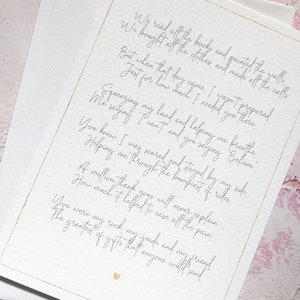 We read all the books and painted the walls
We bought all the clothes and made all the calls
But when that day came, I wasn't prepared
Just for how much I needed you there
Squeezing my hand and helping me breathe,
Me saying "I can't" and you saying "Believe"
You knew I was scared, and stayed by my side,
Helping me through the bumpiest of rides
A million thank yous will never explain
How much it helped to ease all the pain
You were my rock, my guide and my friend
The greatest of gifts that anyone could send